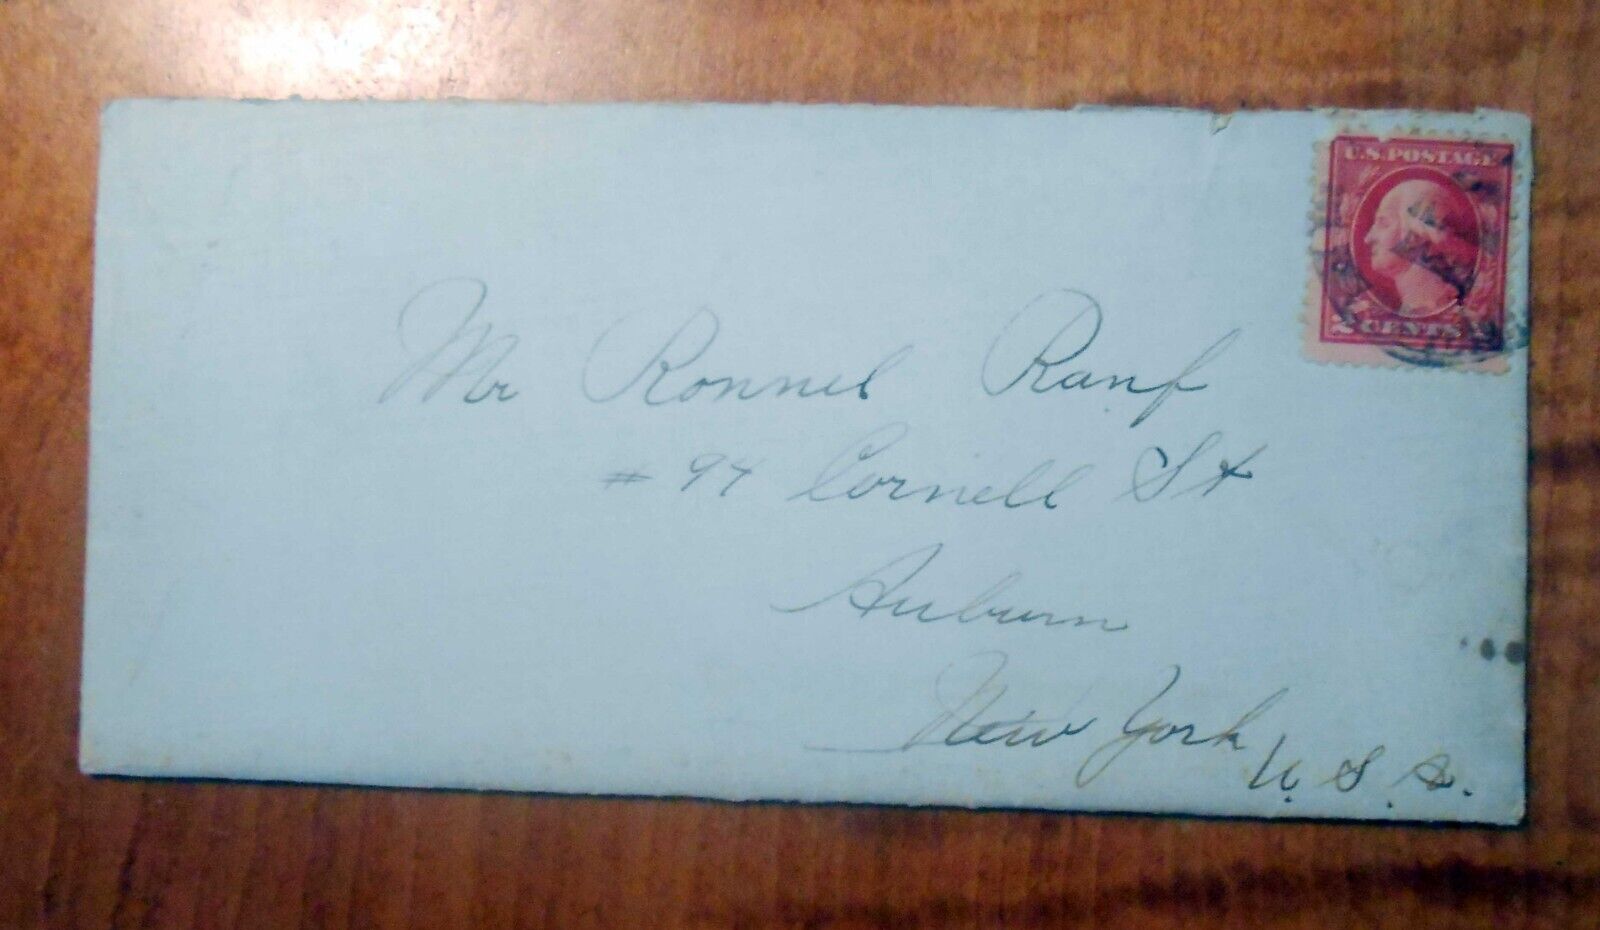 U.S. POSTAGE
2 CENTS 2
Mr Ronnel Ranf
# 94 Cornell St
Auburn
New York
U. S. A.